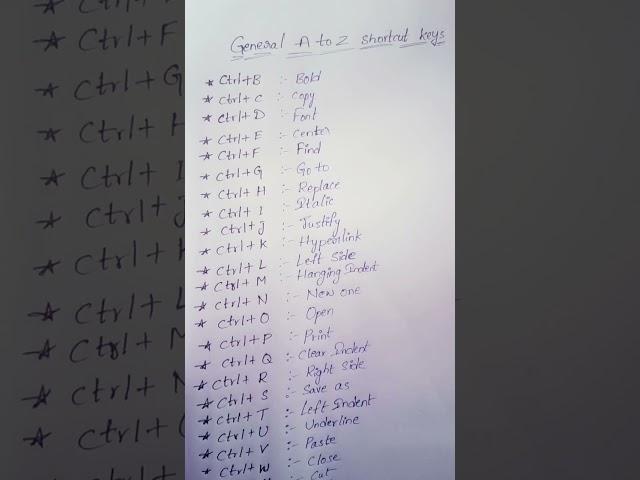 General A to Z shortcut keys
* Ctrl+B :- Bold
* Ctrl+C :- Copy
* Ctrl+D :- Font
* Ctrl+E :- Center
* Ctrl+F :- Find
* Ctrl+G :- Go to
* Ctrl+H :- Replace
* Ctrl+I :- Italic
* Ctrl+J :- Justify
* Ctrl+K :- Hyperlink
* Ctrl+L :- Left Side
* Ctrl+M :- Hanging Indent
* Ctrl+N :- New one
* Ctrl+O :- Open
* Ctrl+P :- Print
* Ctrl+Q :- Clear Indent
* Ctrl+R :- Right Side
* Ctrl+S :- Save as
* Ctrl+T :- Left Indent
* Ctrl+U :- Underline
* Ctrl+V :- Paste
* Ctrl+W :- Close
:- Cut